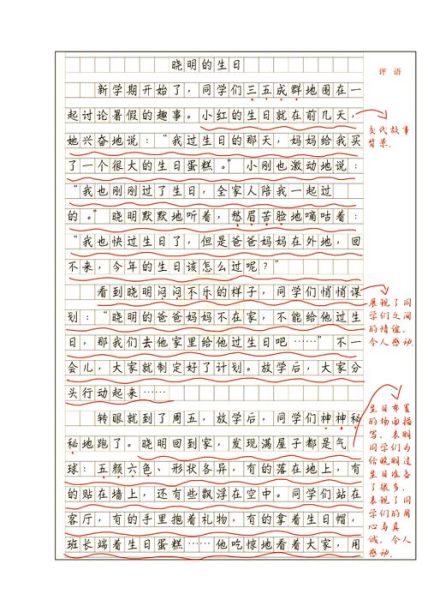 晓明的生日
评语
新学期开始了，同学们三五成群地围在一
起讨论暑假的趣事。小红的生日就在前几天，
她兴奋地说：“我过生日的那天，妈妈给我买
了一个很大的生日蛋糕。”小刚也激动地说：
“我也刚刚过了生日，全家人陪我一起过
的。”晓明默默地听着，愁眉苦脸地嘀咕着：
“我也快过生日了，但是爸爸妈妈在外地，回
不来，今年的生日该怎么过呢？”
交代故事
背景。
看到晓明闷闷不乐的样子，同学们悄悄谋
划：“晓明的爸爸妈妈不在家，不能给他过生
日，那我们去他家里给他过生日吧……”不一
会儿，大家就制定好了计划。放学后，大家分
头行动起来……
展现了同
学们之间
的情谊，
令人感动
转眼就到了周五，放学后，同学们神神秘
秘地跑了。晓明回到家，发现满屋子都是气
球：五颜六色、形状各异，有的落在地上，有
的贴在墙上，还有些飘浮在空中。同学们站在
客厅，有的手里抱着礼物，有的拿着生日帽，
班长端着生日蛋糕……他吃惊地看着大家，用
生日布置
的场面描
写，表明
同学们为
给晓明过
生日准备
了很多，
表现了同
学们的用
心与真
诚，令人
感动。